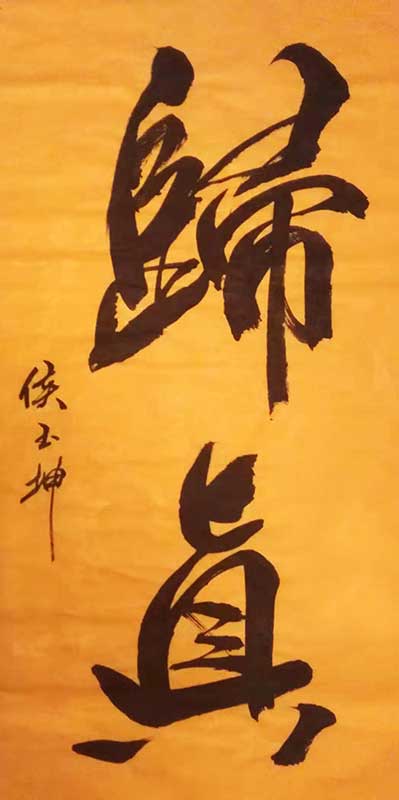 歸眞
侯玉坤